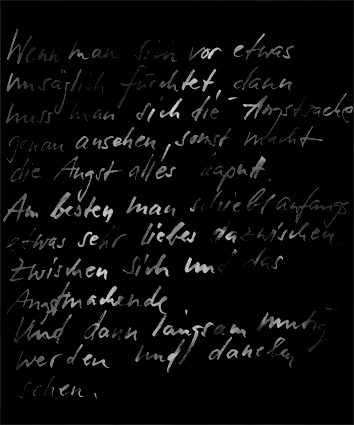 Wenn man sich vor etwas
unsäglich fürchtet, dann
muss man sich die Angstsache
genau ansehen, sonst macht
die Angst alles kaputt.
Am besten man schiebt anfangs
etwas sehr liebes dazwischen.
Zwischen sich und das
Angstmachende
Und dann langsam mutig
werden und daneben
sehen.